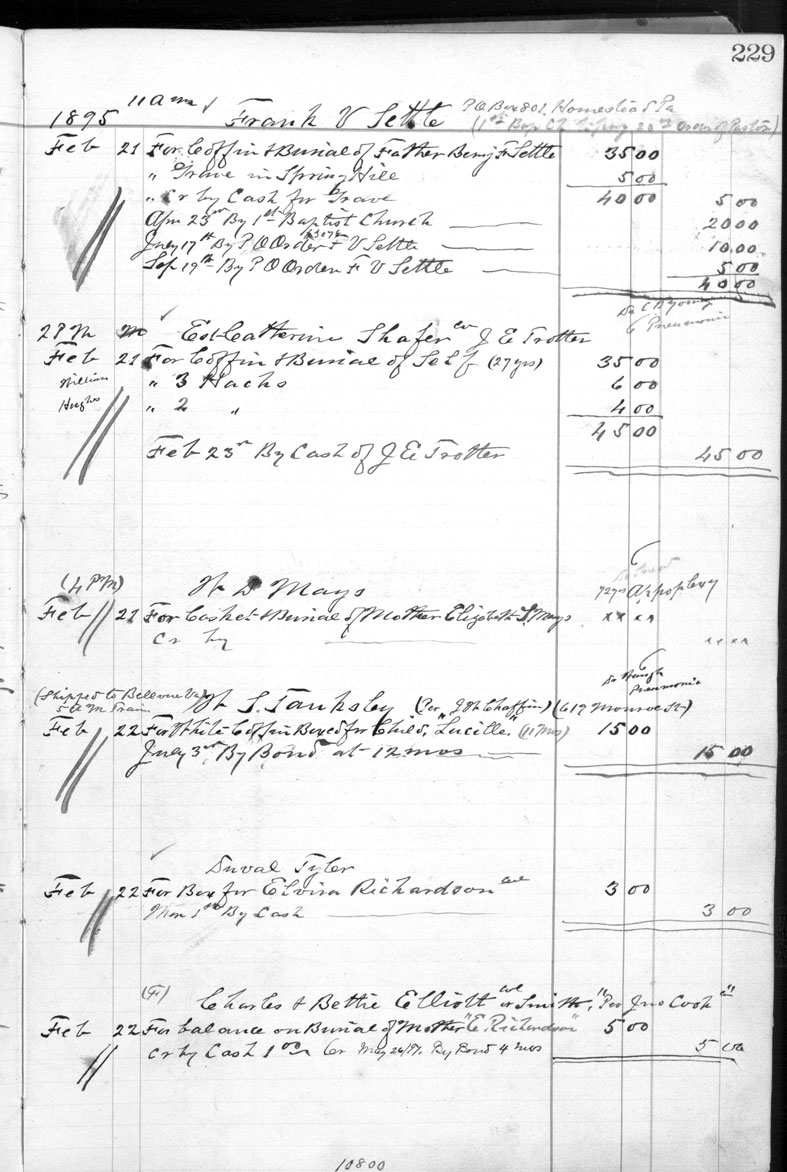 229
11 am Frank V Settle P O Box 801, Homestead Pa
1895 (1st Bap Ch
Feb 21 For Coffin & Burial of Father Benj F Settle 35 00
" Grave in Spring Hill 5 00
" Cr by Cash for Grave 40 00 5 00
Apr 23rd By 1st Baptist Church 20 00
July 17th By P O Order F V Settle 10 00
Sep 19th By P O Order F V Settle 5 00
40 00
2 PM Est Catherine Shafer J E Trotter Pneumonia
Feb 21 For Coffin & Burial of Self (27 yrs) 35 00
William " 3 Hacks 6 00
Hughes " 2 " 4 00
45 00
Feb 23rd By Cash of J E Trotter 45 00
(4 PM) W D Mays 72 yrs Appoplexy
Feb 21 For Casket & Burial of Mother Elizabeth Mays x x x x
Cr by x x x x
Pneumonia
(Shipped to Bellevue Va
5 A M Train W S Tanksley (Per Chaffin) (619 Monroe St)
Feb 22 For White Coffin Boxed for Child, "Lucille" (11 mos) 15 00
July 3rd By Bond at 12 mos 15 00
Duval Tyler
Feb 22 For Box for Elvira Richardson 3 00
By Cash 3 00
(F) Charles & Bettie Elliott or Smith, "Per Jno Cook"
Feb 22 For balance on Burial of Mother "E. Richardson" 5 00
Cr by Cash 1 00 Cr By Bond 4 mos 5 00
108 00